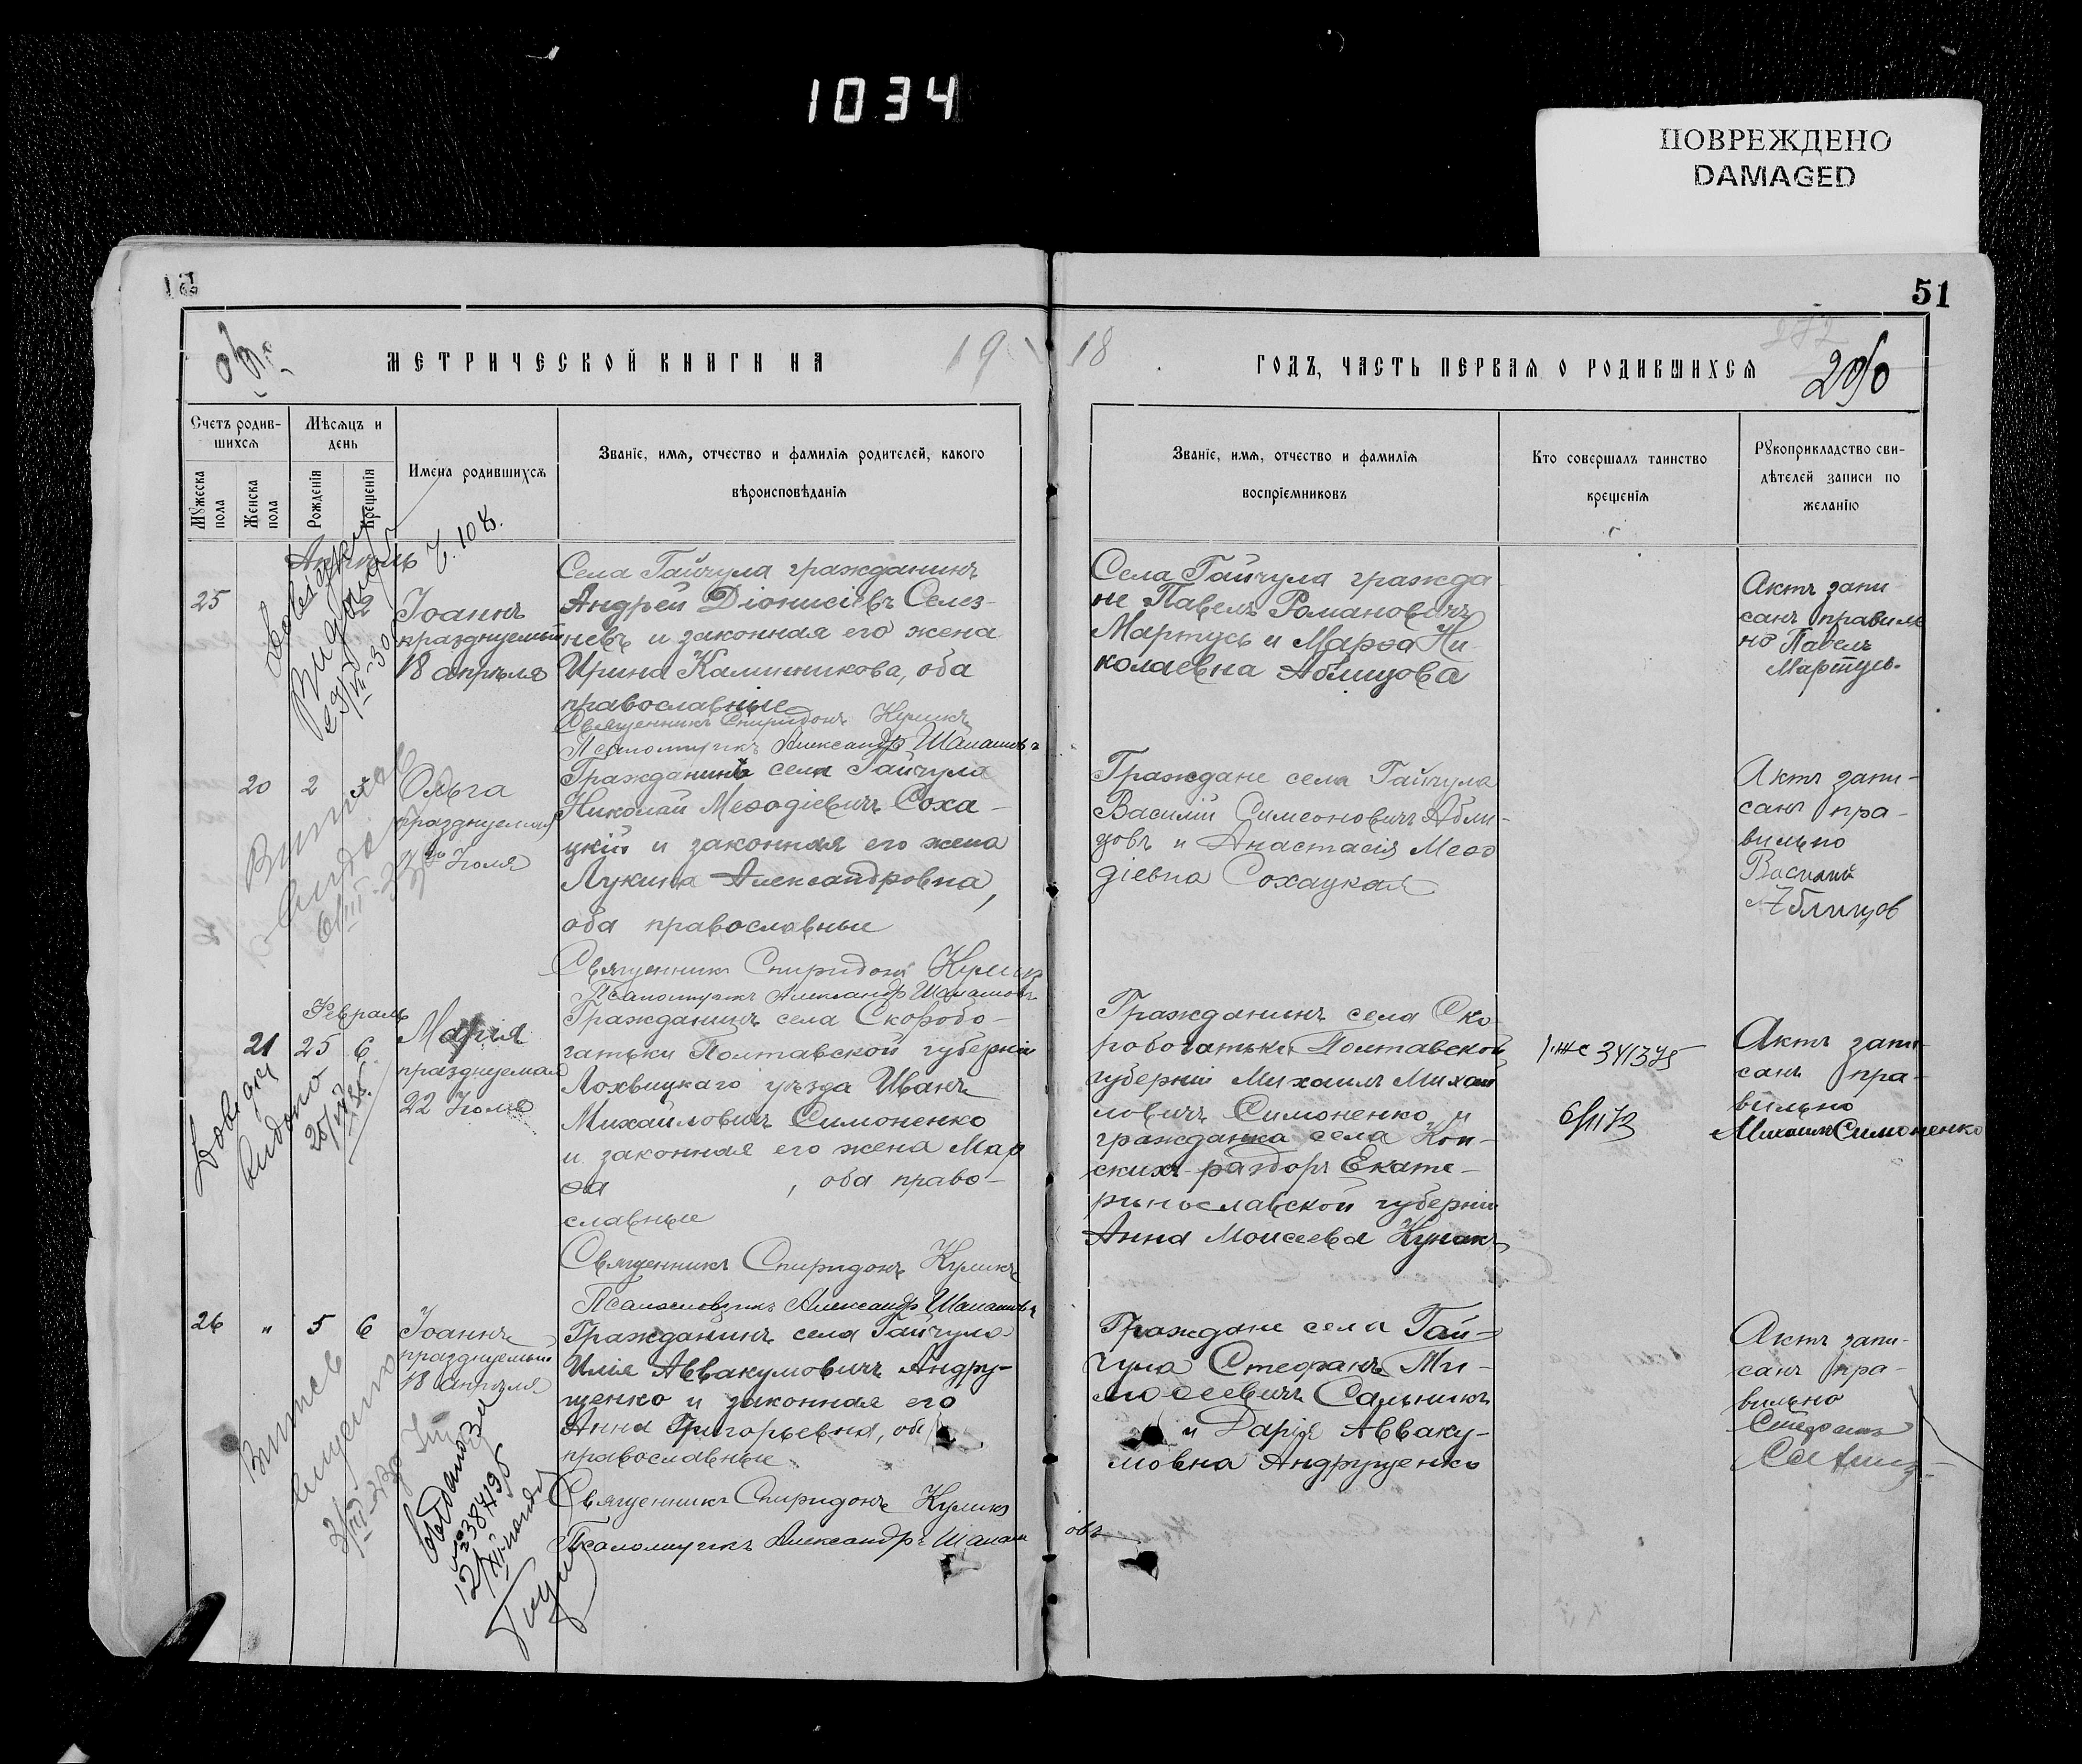 1034
ПОВРЕЖДЕНО
DAMAGED
51
МЕТРИЧЕСКОЙ КНИГИ НА 19
18 ГОДЪ, ЧАСТЬ ПЕРВАЯ О РОДИВШИХСЯ
Счетъ родив-
шихся
Мужеска
пола
Женска
пола
Мѣсяцъ и
день
Рожденія
Крещенія
Имена родившихся
Званіе, имя, отчество и фамилія родителей, какого
вѣроисповѣданія
Званіе, имя, отчество и фамилія
воспріемниковъ
Кто совершалъ таинство
крещенія
Рукоприкладство сви-
дѣтелей записи по
желанію
Апрѣль
25
2
Іоаннъ
празднуемый
18 апрѣля
Села Гайчула гражданинъ
Андрей Діонисіевъ Селез-
невъ и законная его жена
Ирина Калинникова, оба
православные
Священникъ Спиридонъ Куликъ
Псаломщикъ Александръ
Села Гайчула гражда
не Павелъ Романовичъ
Мартусь и Марѳа Ни
колаевна Аблицова
Актъ запи
санъ правиль
но Павелъ
Мартусь.
20 2
Ольга
празднуемая
Іюля
Гражданинъ села Гайчула
Николай Меѳодіевичъ Соха-
цкій и законная его жена
Лукина Александровна,
оба православные
Священникъ Спиридонъ Куликъ
Псаломщикъ Александръ
Граждане села Гайчула
Василій Симеоновичъ Абли-
цовъ и Анастасія Меѳо
діевна Сохацкая
Актъ запи-
санъ пра-
вильно
Василий
Аблицов
Февраль
21 25 6
Марія
празднуемая
22 Іюля
Гражданинъ села Скоробо-
гатьки Полтавской губерніи
Лохвицкаго уѣзда Иванъ
Михайловичъ Симоненко
и законная его жена Мар
ѳа , оба право-
славные
Священникъ Спиридонъ Куликъ
Александръ
Гражданинъ села Ско
робогатьки Полтавской
губерніи Михаилъ Михай
ловичъ Симоненко и
гражданка села Кон-
скихъ-раздоръ Екате-
ринославской губерніи
Анна Моисеева Кунакъ
Актъ запи-
санъ пра-
вильно
Михаилъ Симоненко
26 " 5 6
Іоаннъ
празднуемый
18 апрѣля
Гражданинъ села Гайчула
Илія Аввакумовичъ Андру-
щенко и законная его
Анна Григорьевна, об
православные
Священникъ Спиридонъ Куликъ
Псаломщикъ Александръ
овъ
Граждане села Гай-
чула Стефанъ Ти-
моѳеевичъ Сальникъ
и Дарія Авваку-
мовна Андрущенко
Актъ запи-
санъ пра-
вильно
Стефанъ